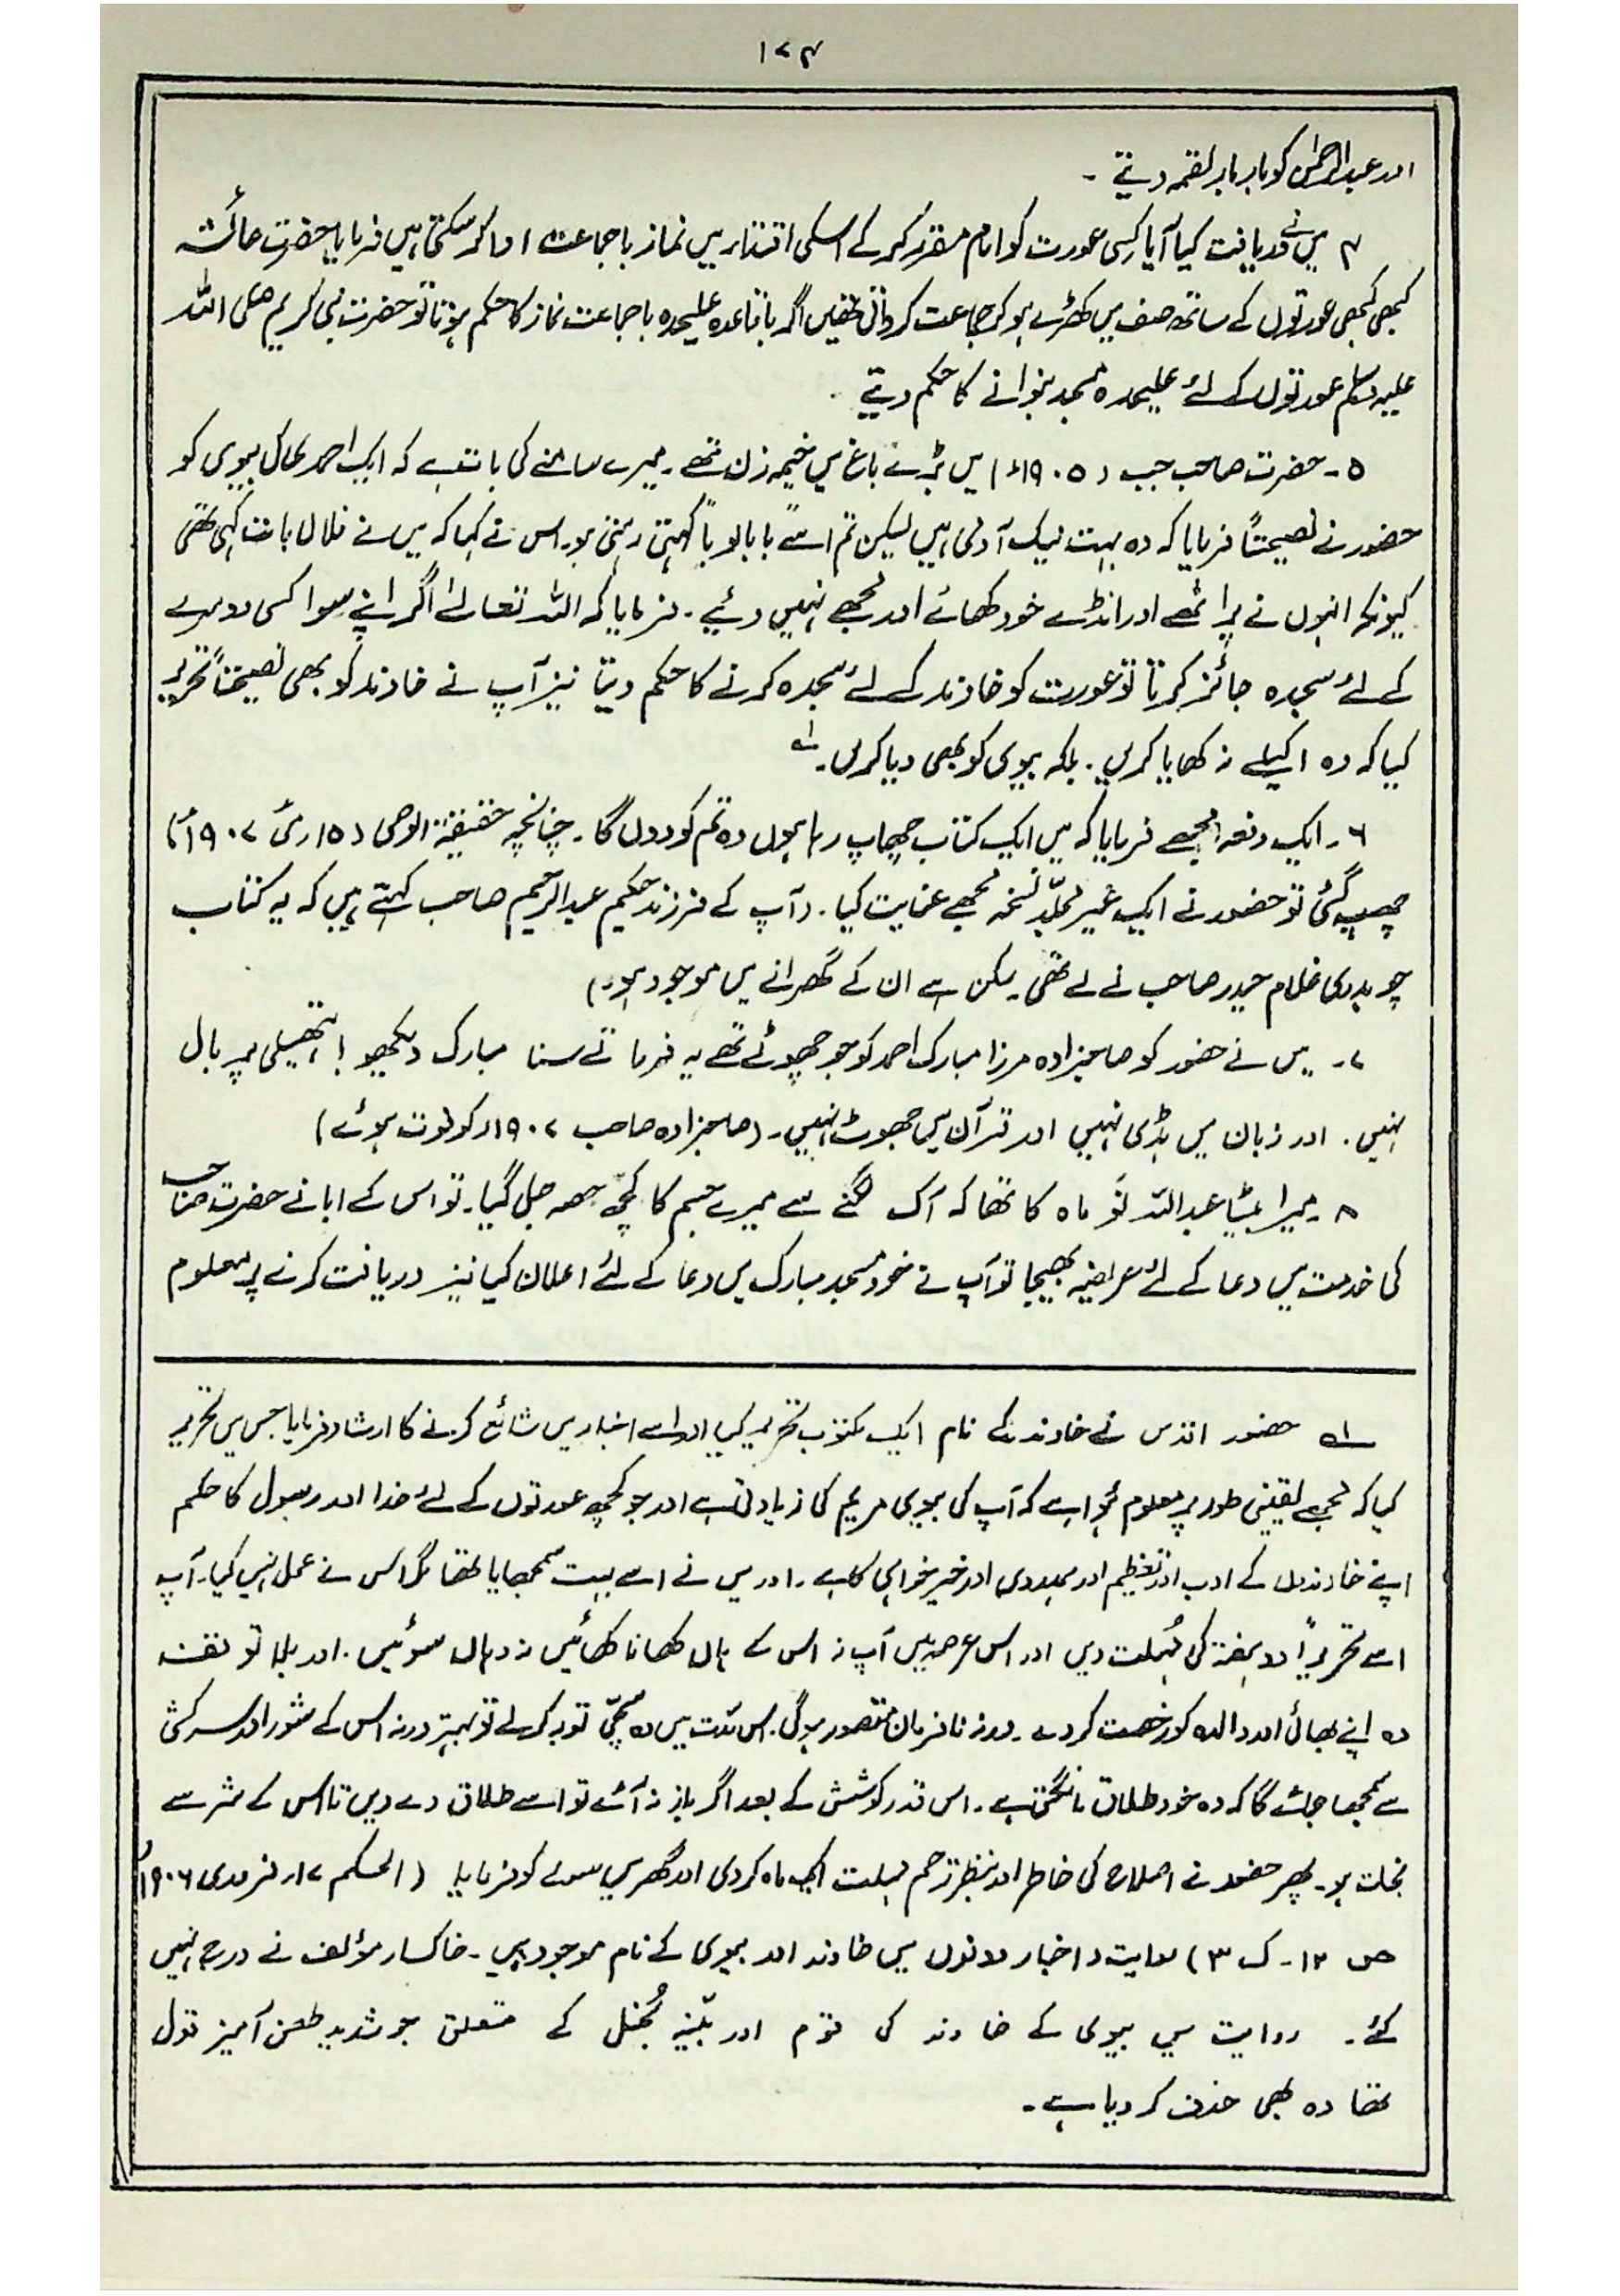 ۱۷۴
اور عبدالرحمٰن کو بار بار لقمہ دیتے۔
۴ میں نے دریافت کیا آیا کسی عورت کو امام مقرر کر کے اسکی اقتداء میں نماز باجماعت ادا کر سکتی ہیں فرمایا حضرت عائشہ
کبھی کبھی عورتوں کے ساتھ صف میں کھڑے ہو کر جماعت کرواتی تھیں اگر باقاعدہ علیحدہ باجماعت نماز کا حکم ہوتا تو حضرت نبی کریم صلی اللہ
علیہ وسلم عورتوں کے لئے علیحدہ مسجد بنوانے کا حکم دیتے۔
۵۔ حضرت صاحب جب (۱۹۰۵ء) میں بڑے باغ میں خیمہ زن تھے۔ میرے سامنے کی بات ہے کہ ایک احمدی کی بیوی کو
حضور نے نصیحتاً فرمایا کہ وہ بہت نیک آدمی ہیں لیکن تم اسے "بابا لوبا" کہتی رہتی ہو۔ اس نے کہا کہ میں نے فلاں بات کہی تھی
کیونکہ انہوں نے پراٹھے اور انڈے خود کھائے اور مجھے نہیں دئیے۔ فرمایا کہ اللہ تعالےٰ اگر اپنے سوا کسی دوسرے
کے لئے سجدہ جائز کرتا تو عورت کو خاوند کے لئے سجدہ کرنے کا حکم دیتا نیز آپ نے خاوند کو بھی نصیحتاً تحریر
کیا کہ وہ اکیلے نہ کھایا کریں۔ بلکہ بیوی کو بھی دیا کریں۔ لہ
۶۔ ایک دفعہ مجھے فرمایا کہ میں ایک کتاب چھاپ رہا ہوں وہ تم کو دوں گا۔ چنانچہ حقیقۃ الوحی (۱۵ مئی ۱۹۰۷ء)
چھپ گئی تو حضور نے ایک غیر مجلّد نسخہ مجھے عنایت کیا۔ (آپ کے فرزند حکیم عبدالرحیم صاحب کہتے ہیں کہ یہ کتاب
چوہدری غلام حیدر صاحب نے لے تھی۔ ممکن ہے ان کے گھرانے میں موجود ہو۔)
۷۔ میں نے حضور کو صاحبزادہ مرزا مبارک احمد کو جو چھوٹے تھے یہ فرماتے سنا مبارک دیکھو! ہتھیلی پر بال
نہیں۔ اور زبان میں ہڈی نہیں اور قرآن میں جھوٹ نہیں۔ (صاحبزادہ صاحب ۱۹۰۷ء کو فوت ہوئے)
۸۔ میرا بیٹا عبداللہ نَو ماہ کا تھا کہ آگ لگنے سے میرے جسم کا کچھ حصہ جل گیا۔ تو اس کے ابا نے حضرت صاحب
کی خدمت میں دعا کے لئے عریضہ بھیجا تو آپ نے خود مسجد مبارک میں دعا کے لئے اعلان کیا نیز دریافت کرنے پر معلوم
لہ حضور اقدس نے خاوند کے نام ایک مکتوب تحریر کیا اور اسے اخبار میں شائع کرنے کا ارشاد فرمایا جس میں تحریر
کیا کہ مجھے یقینی طور پر معلوم ہُوا ہے کہ آپ کی بیوی مریم کی زیادتی ہے اور جو کچھ عورتوں کے لئے خدا اور رسول کا حکم
اپنے خاوندوں کے ادب اور تعظیم اور ہمدردی اور خیرخواہی کا ہے۔ اور میں نے اسے بہت سمجھایا تھا مگر اس نے عمل نہیں کیا۔ آپ
اسے تحریراً دو ہفتہ کی مُہلت دیں اور اس عرصہ میں آپ نہ اس کے ہاں کھانا کھائیں نہ وہاں سوئیں۔ اور بلا توقف
وہ اپنے بھائی اور والدہ کو رخصت کر دے۔ ورنہ نافرمان متصور ہوگی۔ اس مدّت میں وہ سچّی توبہ کر لے تو بہتر ورنہ اس کے شور اور سرکشی
سے سمجھا جائے گا کہ وہ خود طلاق مانگتی ہے۔ اس قدر کوشش کے بعد اگر باز نہ آئے تو اسے طلاق دے دیں تا اس کے شر سے
نجات ہو۔ پھر حضور نے اصلاح کی خاطر اور بنظر ترحم مہلت ایک ماہ کر دی اور گھر میں سونے کو فرمایا (الحکم ۱۷ فروری ۱۹۰۶ء
ص ۱۲۔ ک ۳) روایت و اخبار دونوں میں خاوند اور بیوی کے نام موجود ہیں۔ خاکسار مؤلف نے درج نہیں
کئے۔ روایت میں بیوی کے خاوند کی قوم اور بُخل کے متعلق جو شدید طعن آمیز قول
تھا وہ بھی حذف کر دیا ہے۔